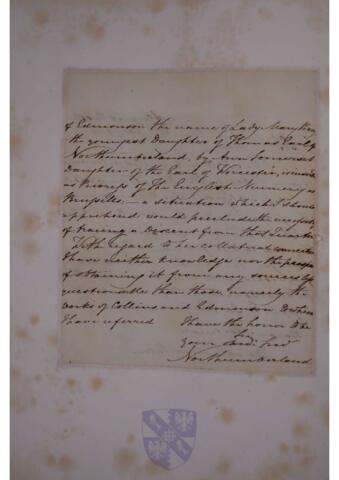 of Edmonson the name of Lady Mary Percy
the youngest Daughter of Thomas Earl of
Northumberland, by Ann Somerset
Daughter of the Earl of Worcester,
as Prioress of The English Nunnery at
Brussells, — a situation which I should
apprehend would preclude the necessity
of tracing a Descent from that Quarter.
With regard to her collateral
I have neither knowledge nor the prospect
of obtaining it from any sources less
questionable than those, namely the
works of Collins and Edmonson to which
I have referred
I have the honor to be
Sir
your
Northumberland